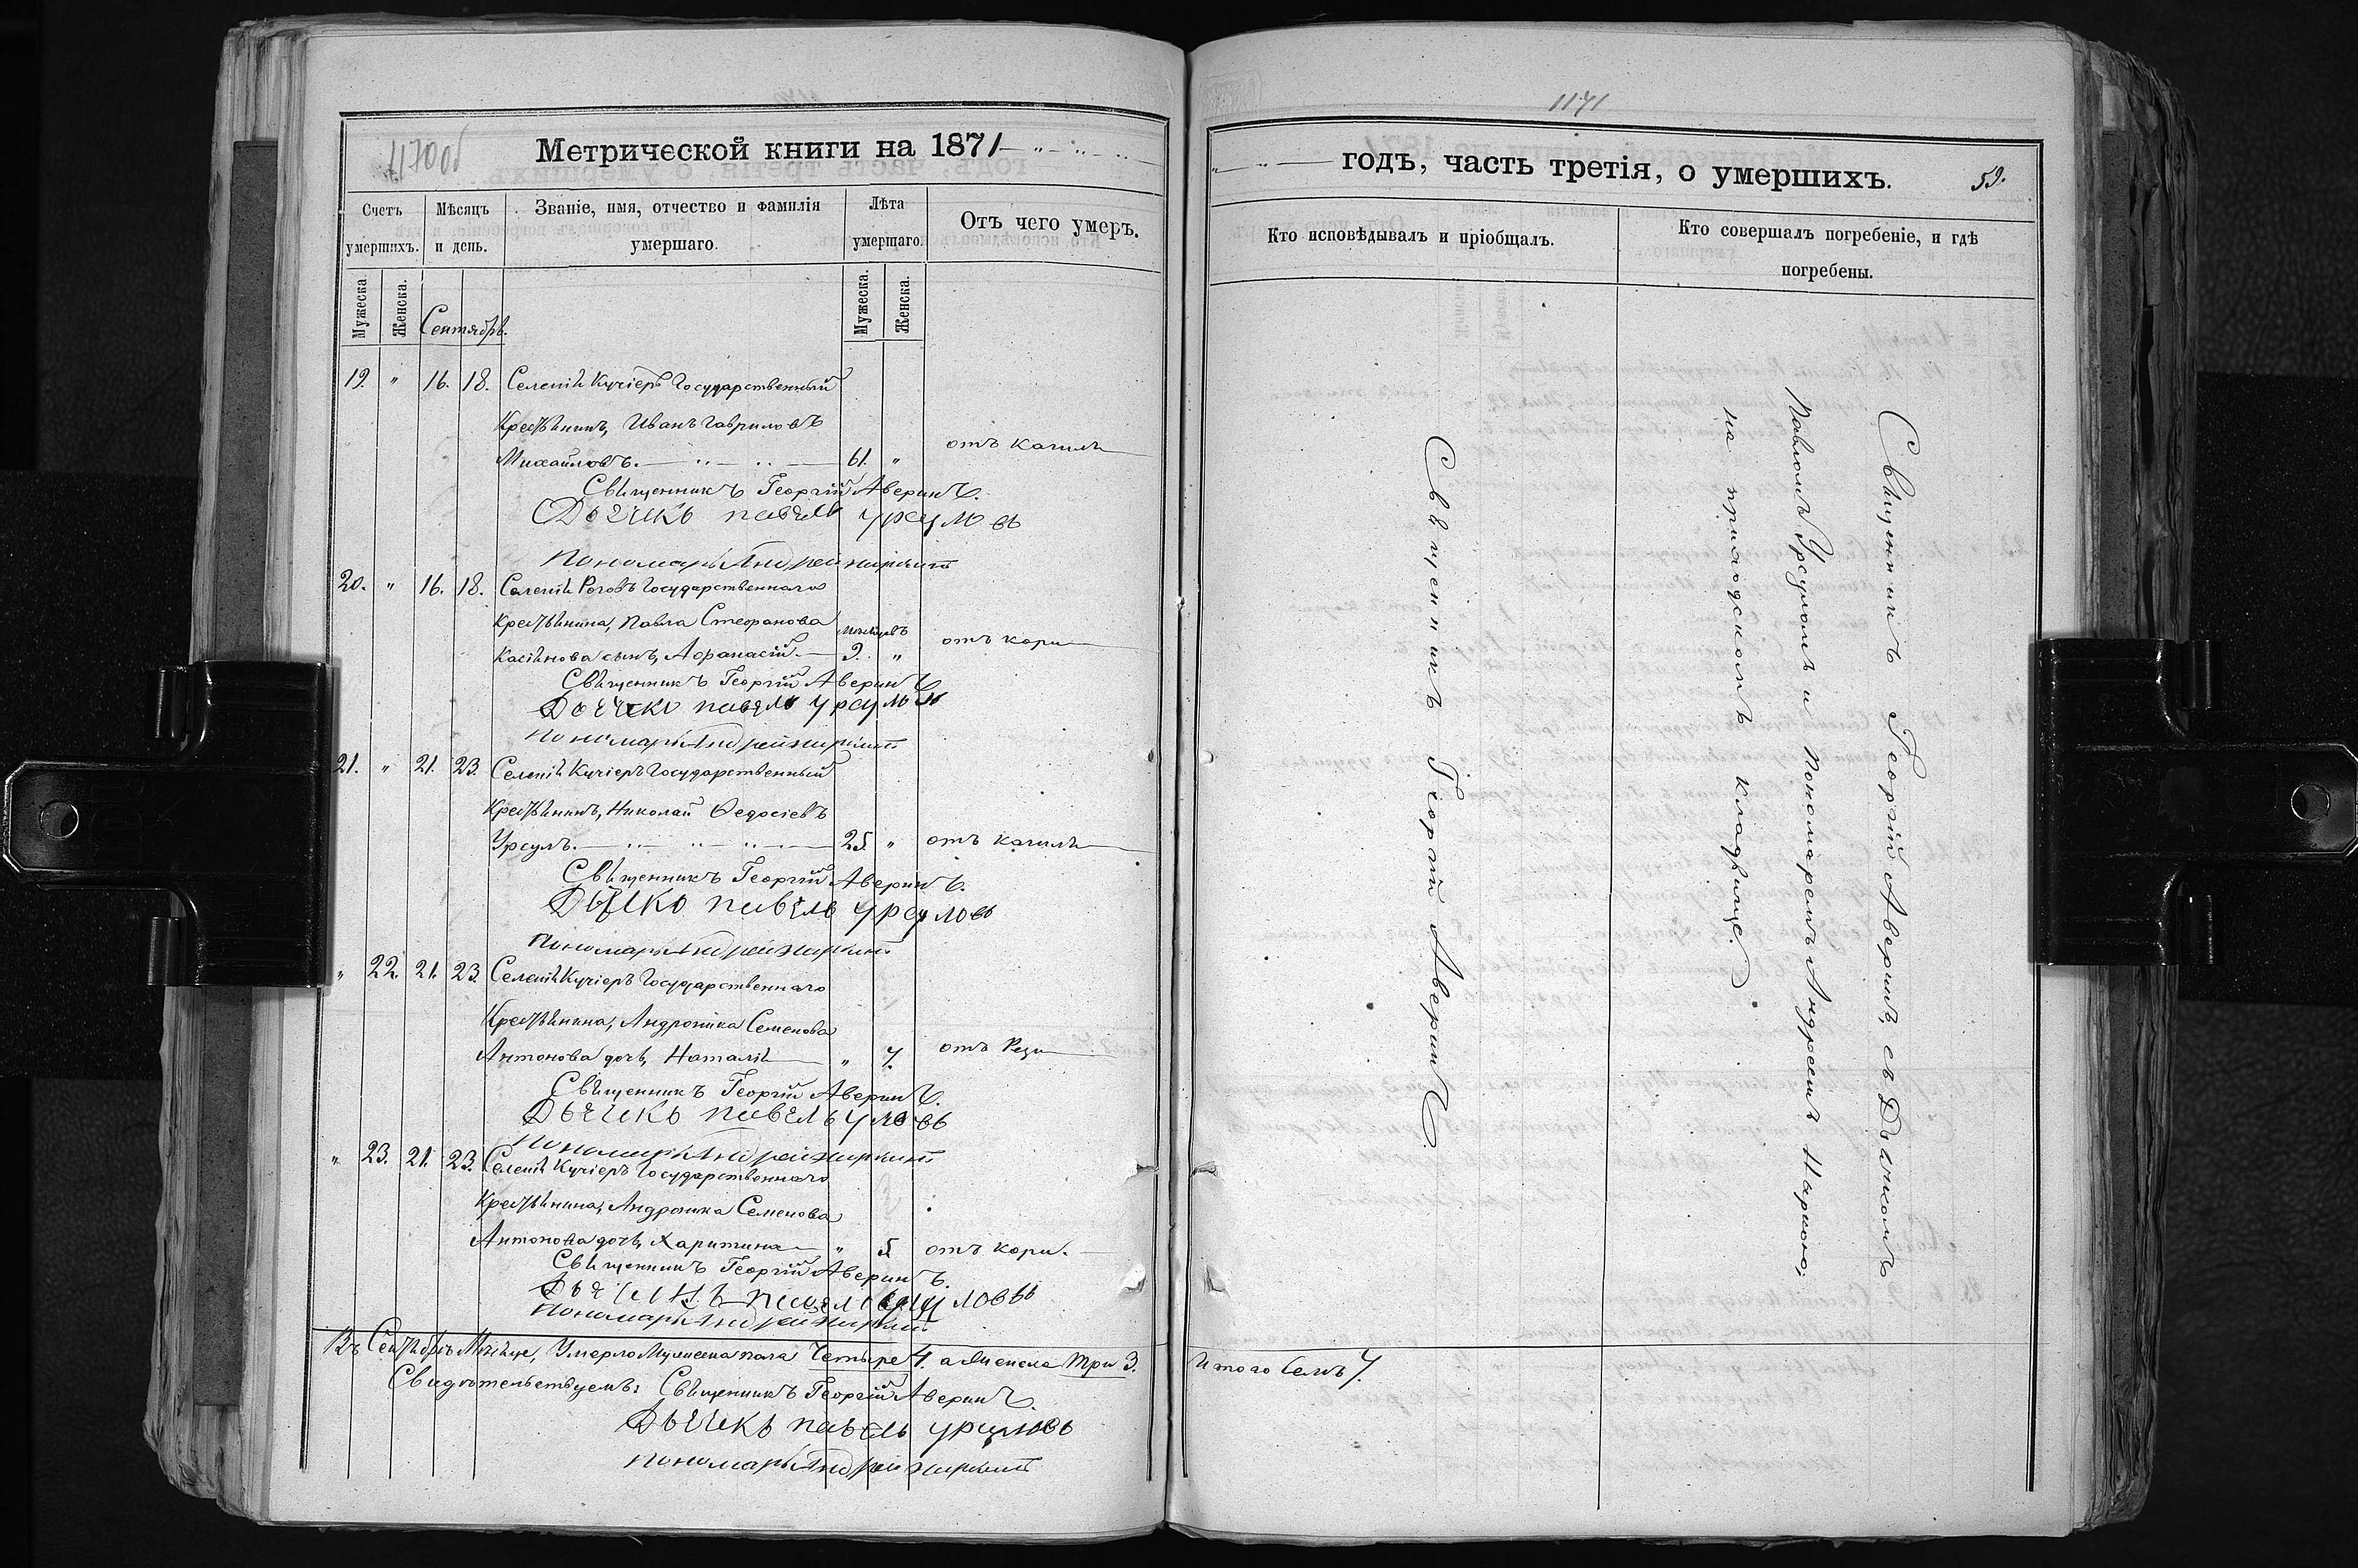 1170об
Метрической книги на 1871
Счетъ умершихъ.
Мѣсяцъ и день.
Званіе, имя, отчество и фамилія умершаго.
Лѣта умершаго.
Отъ чего умеръ.
Мужеска
Женска.
Сентябрь.
Мужеска.
Женска.
19. " 16. 18. Селенія Кучіеръ Государственный
Крестьянинъ, Иванъ Гавриловъ
Михайловъ. 61. " отъ кашля
Священникъ Георгій Аверинъ.
Дьячекъ павелъ урсуловъ
Пономарь Андрей
20. " 16. 18. Селенія Роговъ Государственнаго
Крестьянина, Павла Стефанова
мѣсяцевъ
Касіянова сынъ, Афанасій. 9. " отъ кори
Священникъ Георгій Аверинъ
Дьячекъ павелъ урсуловъ
Пономарь Андрей
21. " 21. 23. Селенія Кучіеръ Государственный
Крестьянинъ, Николай Ѳедосіевъ
Урсулъ. 25. " отъ кашля
Священникъ Георгій Аверинъ.
Дьячекъ павелъ урсуловъ
Пономарь Андрей
" 22. 21. 23. Селенія Кучіеръ Государственнаго
Крестьянина, Андроника Семенова
Антонова дочь, Наталія " 7. отъ
Священникъ Георгій Аверинъ.
Дьячекъ павелъ
Пономарь Андрей
" 23. 21. 23. Селенія Кучіеръ Государственнаго
Крестьянина, Андроника Семенова
Антонова дочь, Харитина " 5. отъ кори.
Священникъ Георгій Аверинъ.
Дьячекъ павелъ урсуловъ
Пономарь Андрей
Въ Сентябрѣ Мѣсяце, Умерло Мужеска пола Четыре 4. а Женска три 3.
Свидѣтельствуемъ: Священникъ Георгій Аверинъ.
Дьячекъ павелъ урсуловъ
пономарь Андрей
1171
годъ, часть третія, о умершихъ.
59.
Кто исповѣдывалъ и пріобщалъ.
Кто совершалъ погребеніе, и гдѣ погребены.
Священникъ Георгій Аверинъ.
Священникъ Георгій Аверинъ, съ Дьячкомъ
Павломъ Урсуломъ и Пономаремъ Андреемъ
на приходскомъ кладбище.
Итого Семь 7.